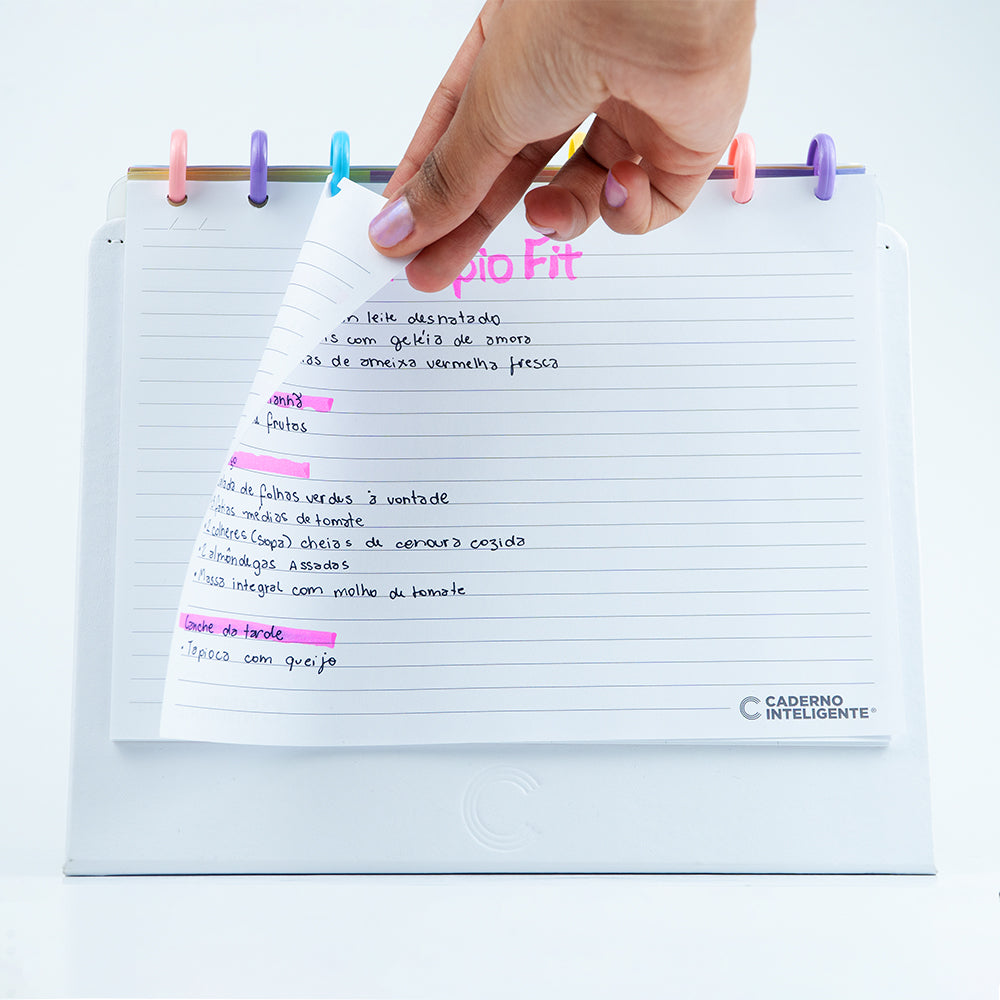 pio Fit
leite desnatado
is com geléia de amora
as de ameixa vermelha fresca
anhã
frutos
go
lada de folhas verdes à vontade
médias de tomate
2 colheres (sopa) cheias de cenoura cozida
• 2 almôndegas Assadas
• Massa integral com molho de tomate
Lanche da tarde
• Tapioca com queijo
CADERNO
INTELIGENTE®